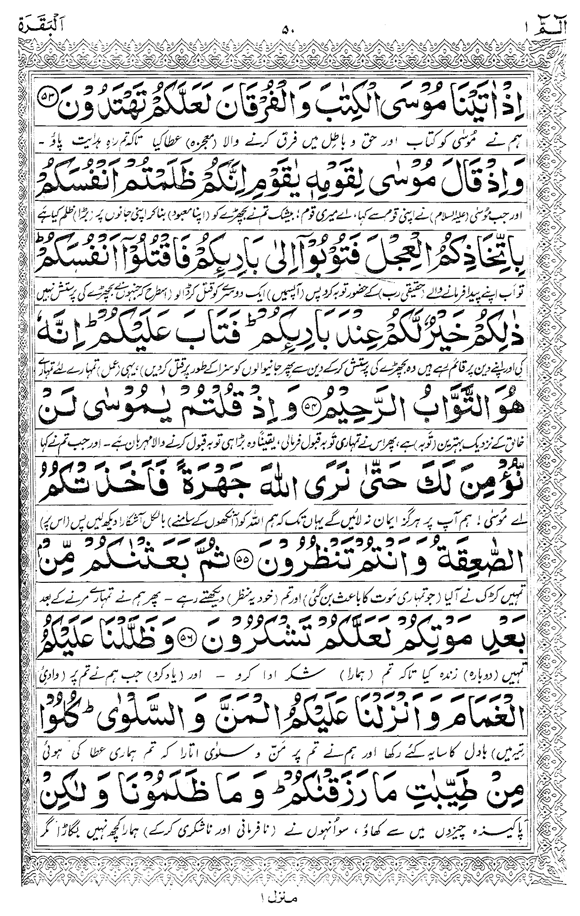 الٓمّٓ ١ ٥٠ اَلْبَقَرَة
اِذْ اٰتَيْنَا مُوْسَى الْكِتٰبَ وَ الْفُرْقَانَ لَعَلَّكُمْ تَهْتَدُوْنَ ﴿۵۳﴾
ہم نے مُوسٰی کو کتاب اور حق و باطِل میں فرق کرنے والا (معجزہ) عطا کیا تاکہ تم رہِ ہدایت پاؤ ۔
وَ اِذْ قَالَ مُوْسٰى لِقَوْمِهٖ يٰقَوْمِ اِنَّكُمْ ظَلَمْتُمْ اَنْفُسَكُمْ
اور جب مُوسٰی (علیہ السلام) نے اپنی قوم سے کہا، اے میری قوم! بیشک تم نے بچھڑے کو (اپنا معبود) بنا کر اپنی جانوں پر (بڑا) ظلم کیا ہے
بِاتِّخَاذِكُمُ الْعِجْلَ فَتُوْبُوْۤا اِلٰى بَارِىِٕكُمْ فَاقْتُلُوْۤا اَنْفُسَكُمْ ؕ
تو اب اپنے پیدا فرمانے والے (حقیقی رب) کے حضور توبہ کرو پس (آپس میں) ایک دوسرے کو قتل کر ڈالو (اس طرح کہ جنہوں نے بچھڑے کی پرستش نہیں
ذٰلِكُمْ خَيْرٌ لَّكُمْ عِنْدَ بَارِىِٕكُمْ ؕ فَتَابَ عَلَيْكُمْ ؕ اِنَّهٗ
کی اور اپنے دین پر قائم رہے ہیں وہ بچھڑے کی پرستش کر کے دین سے پھر جانیوالوں کو سزا کے طور پر قتل کر دیں) ، یہی (عمل) تمہارے لئے تمہارے
هُوَ التَّوَّابُ الرَّحِيْمُ ﴿۵۴﴾ وَ اِذْ قُلْتُمْ يٰمُوْسٰى لَنْ
خالق کے نزدیک بہترین (توبہ) ہے، پھر اس نے تمہاری توبہ قبول فرما لی، یقیناً وہ بڑا ہی توبہ قبول کرنے والا مہربان ہے ۔ اور جب تم نے کہا
نُّؤْمِنَ لَكَ حَتّٰى نَرَى اللّٰهَ جَهْرَةً فَاَخَذَتْكُمُ
اے مُوسٰی! ہم آپ پر ہرگز ایمان نہ لائیں گے یہاں تک کہ ہم اللہ کو (آنکھوں کے سامنے) بالکل آشکارا دیکھ لیں پس (اس پر)
الصّٰعِقَةُ وَ اَنْتُمْ تَنْظُرُوْنَ ﴿۵۵﴾ ثُمَّ بَعَثْنٰكُمْ مِّنْۢ
تمہیں کڑک نے آ لیا (جو تمہاری موت کا باعث بن گئی) اور تم (خود یہ منظر) دیکھتے رہے ۔ پھر ہم نے تمہارے مرنے کے بعد
بَعْدِ مَوْتِكُمْ لَعَلَّكُمْ تَشْكُرُوْنَ ﴿۵۶﴾ وَ ظَلَّلْنَا عَلَيْكُمُ
تمہیں (دوبارہ) زندہ کیا تاکہ تم (ہمارا) شکر ادا کرو ۔ اور (یاد کرو) جب ہم نے تم پر (وادیٔ
الْغَمَامَ وَ اَنْزَلْنَا عَلَيْكُمُ الْمَنَّ وَ السَّلْوٰى ؕ كُلُوْا
تیہ میں) بادل کا سایہ کئے رکھا اور ہم نے تم پر مَنّ و سلوٰی اتارا کہ تم ہماری عطا کی ہوئی
مِنْ طَيِّبٰتِ مَا رَزَقْنٰكُمْ ؕ وَ مَا ظَلَمُوْنَا وَ لٰكِنْ
پاکیزہ چیزوں میں سے کھاؤ ، سو اُنہوں نے (نافرمانی اور ناشکری کر کے) ہمارا کچھ نہیں بگاڑا مگر
منزل ١